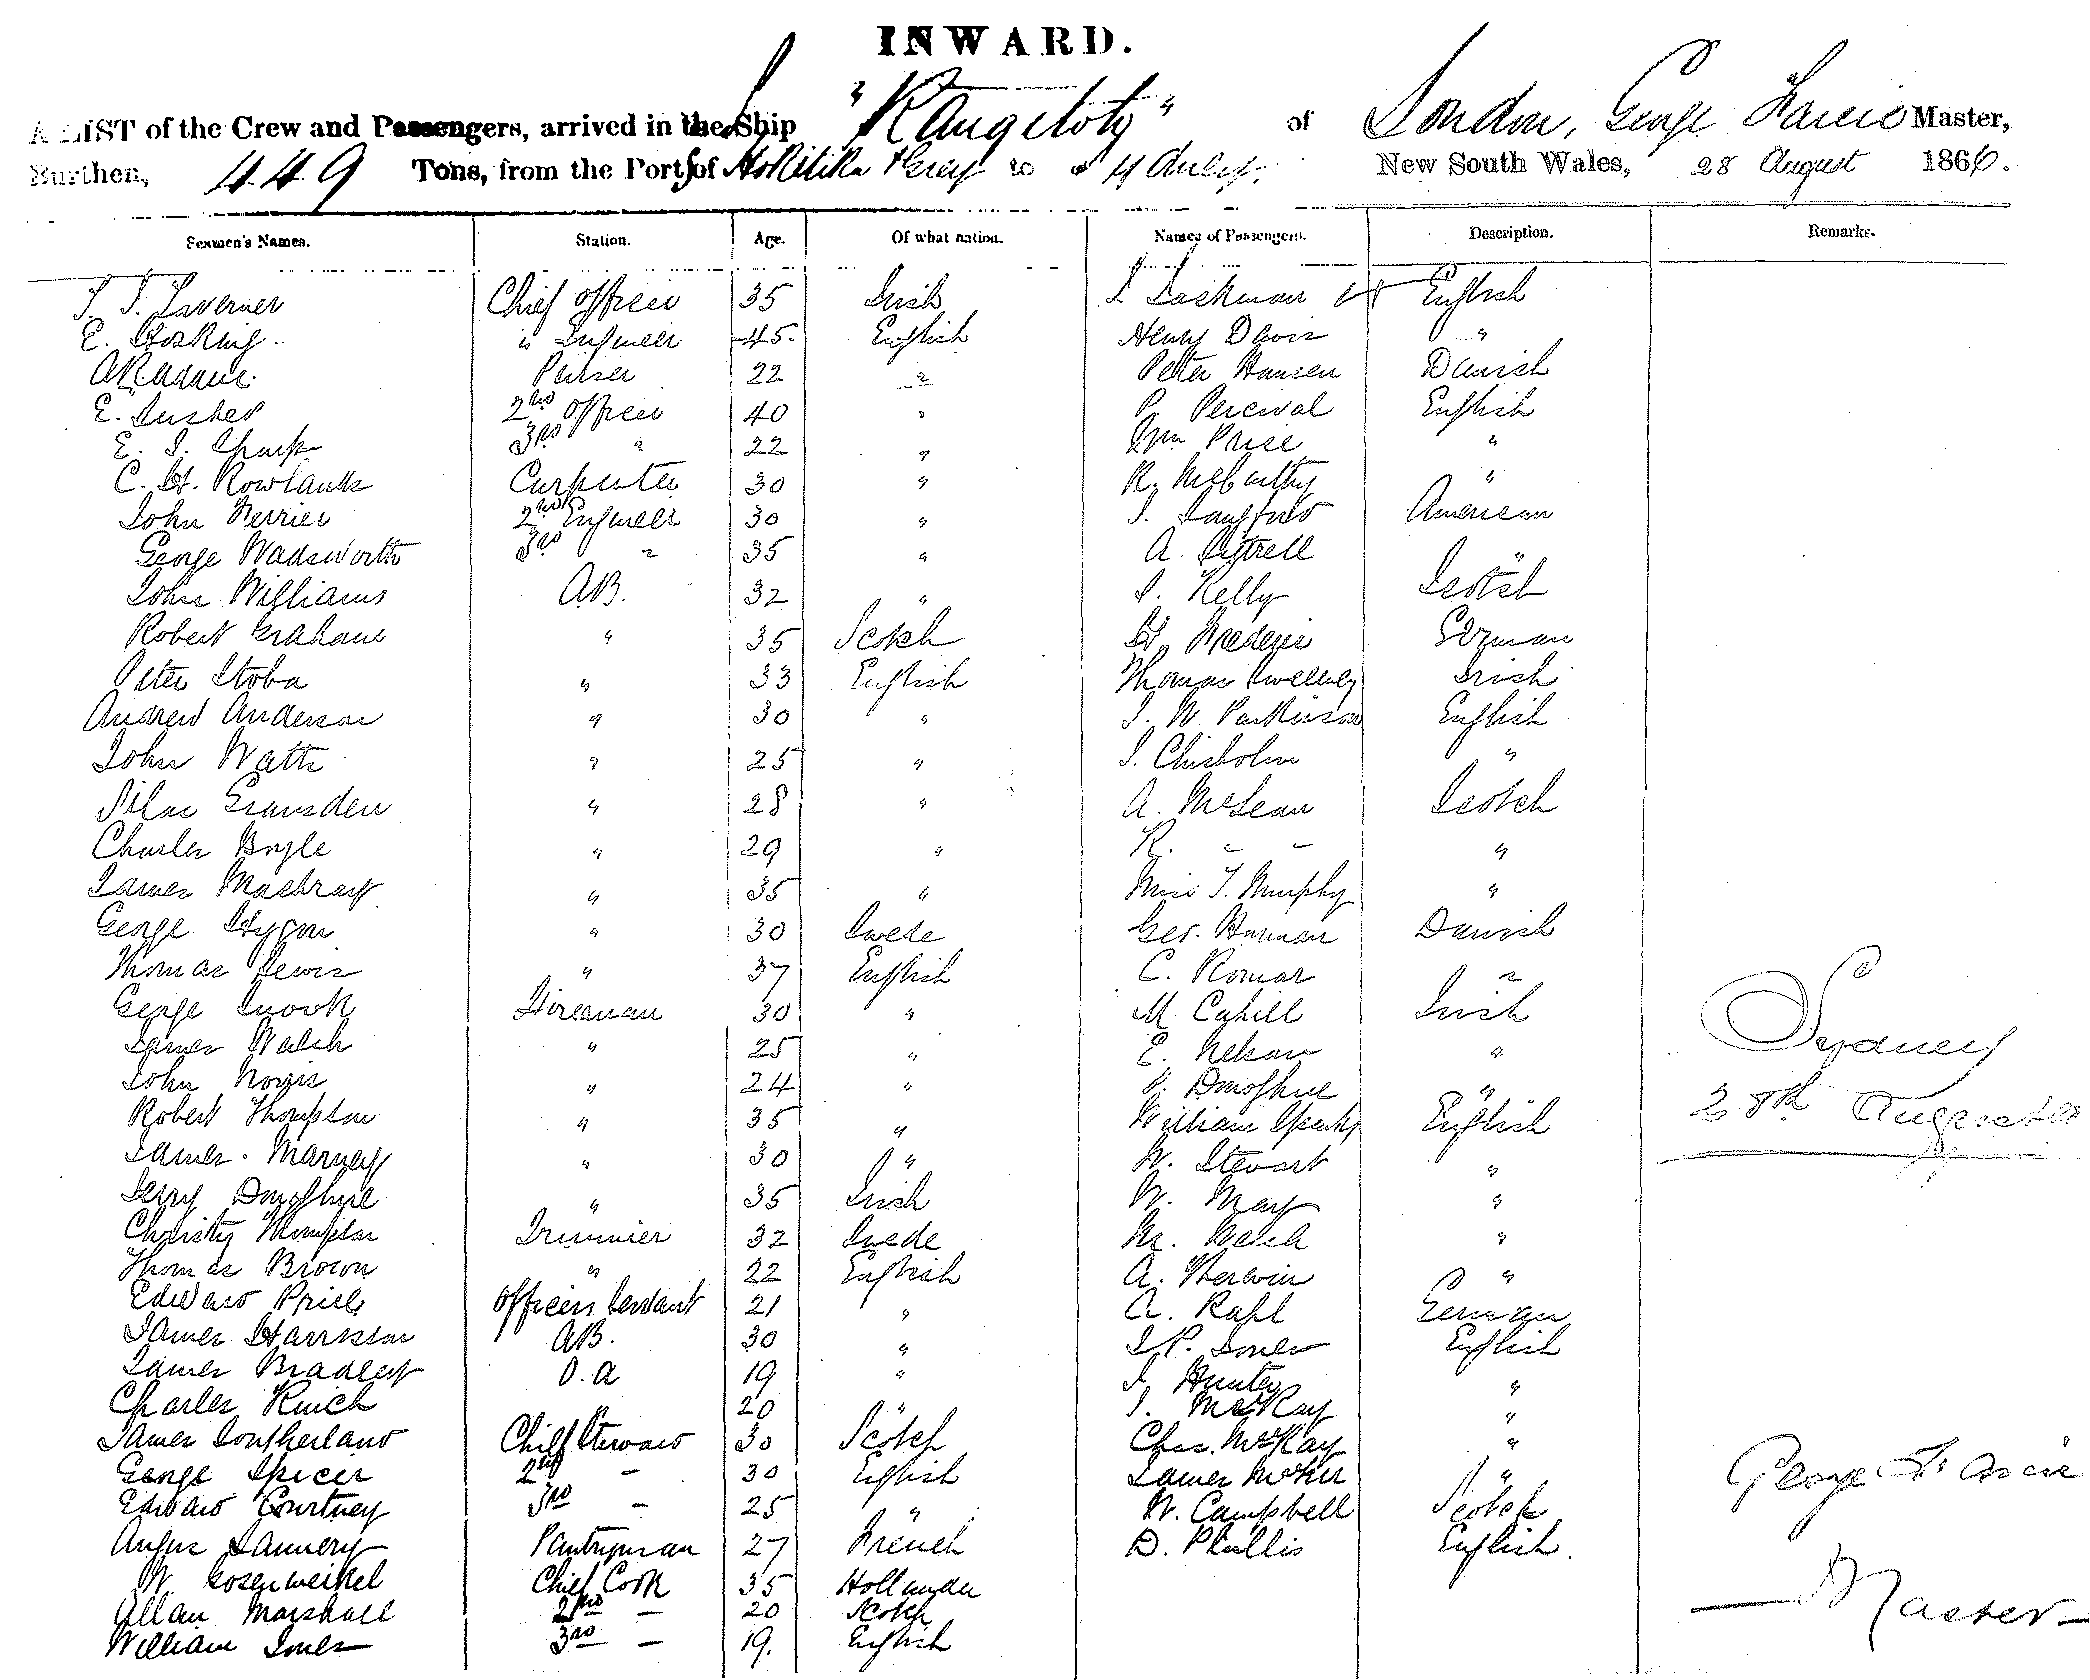 INWARD.
A LIST of the Crew and Passengers, arrived in the Ship "Rangitoto" of London, George Farcie Master,
Burthen, 449 Tons, from the Ports of Hokitika & Grey to New South Wales, 28 August 1866.
Seamen's Names. Station. Age. Of what nation. Names of Passengers. Description. Remarks.
T. T. Taverner Chief officer 35 Irish Lackman English
E. Hosking " Engineer 45 English Henry Davis "
Purser 22 " Peter Hansen Danish
E. 2nd officer 40 " P. Percival English
E. J. Sharp 3rd " 22 " Wm Price "
C. H. Rowlands Carpenter 30 " R. McCarthy "
John 2nd Engineer 30 " J. Langford American
George Wadsworth 3rd " 35 " A. "
John Williams AB. 32 " J. Kelly Scotch
Robert Grahame " 35 Scotch H. German
Peter Stoba " 33 English Thomas Sweeney Irish
Andrew Anderson " 30 " J. W. Parkinson English
John Watts " 25 " J. Chisholm "
Silas Gransden " 28 " A. McLean Scotch
Charles Boyle " 29 " R. " "
James Macbray " 35 " Miss T. Murphy "
George " 30 Swede Geo. Danish
Thomas Lewis " 37 English C. Romar "
George Snook Fireman 30 " M Cahill Irish
James Walsh " 25 " E. Nelson "
John Norris " 24 " Donoghue "
Robert Thompson " 35 " William English
James Marney " 30 " W. Stewart "
Jerry Donoghue " 35 Irish W. May "
Christy Thompson Trimmer 32 Swede M. Walsh "
Thomas Brown " 22 English A. "
Edward Price officers servant 21 " A. Rahl German
James Harrison AB. 30 " J. P. Jones English
James Bradley O.A 19 " J. Hunter "
Charles 20 " J. McKay "
James Southerland Chief Steward 30 Scotch Chas. McKay "
George Spicer 2nd - 30 English James "
Edward Courtney 3rd - 25 " W. Campbell Scotch
Angus Pantryman 27 French D. Phillis English.
W. Chief Cook 35 Hollander
Allan Marshall 2nd - 20 Scotch
William Jones 3rd - 19. English
Sydney
28th August
George
Master